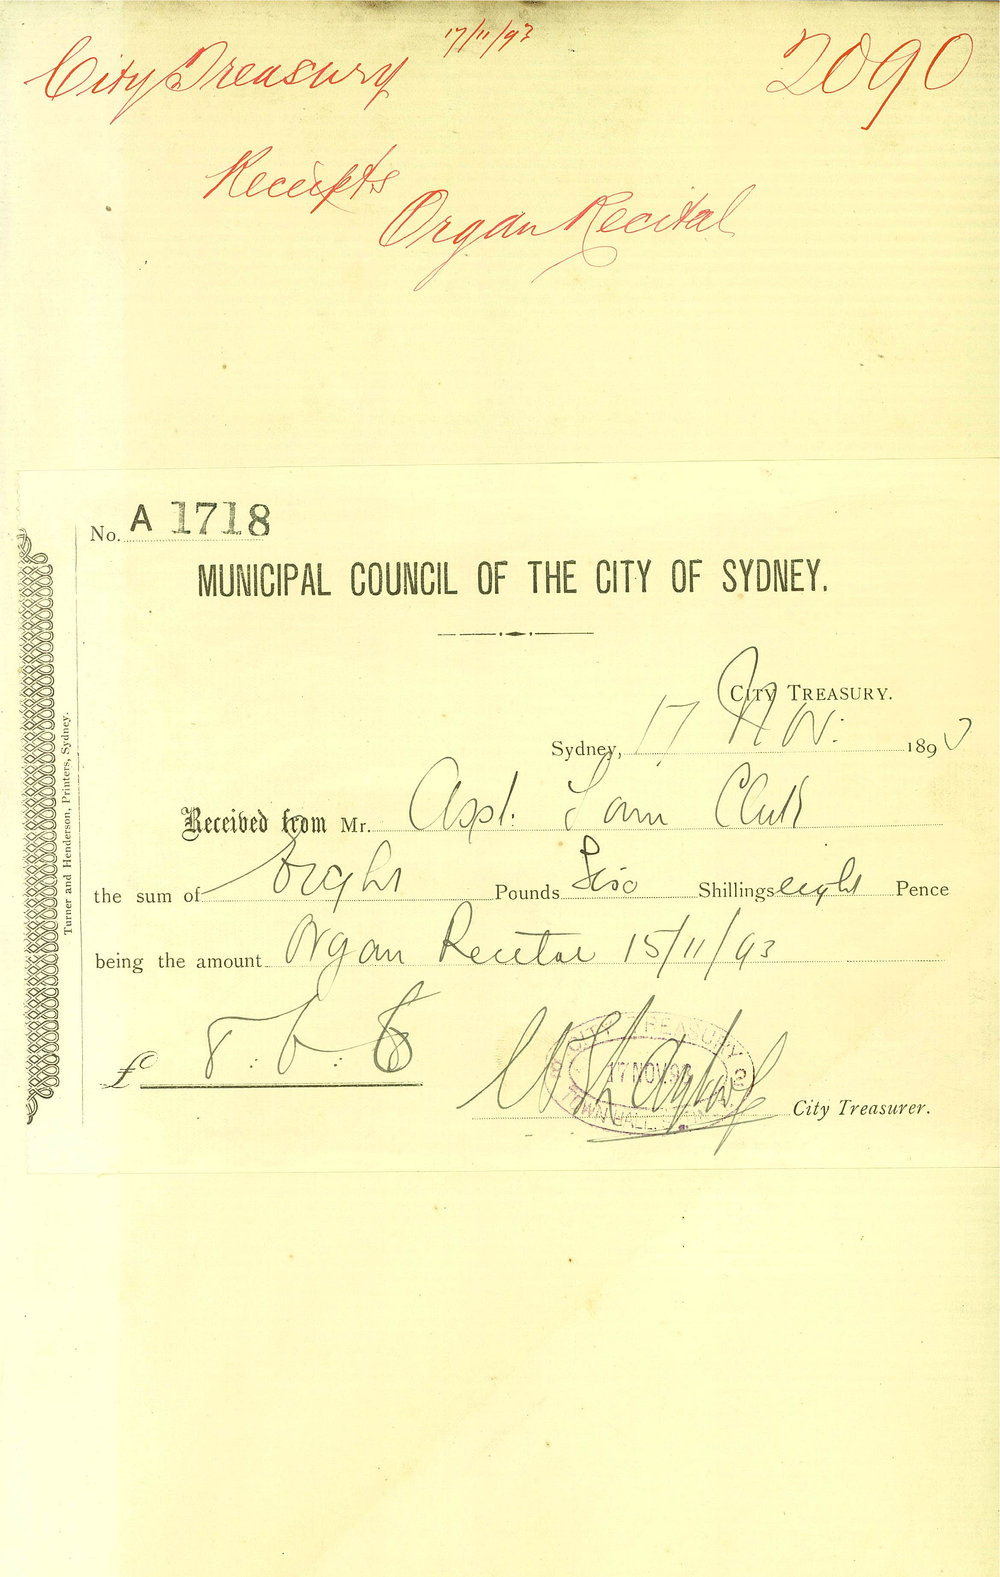 17/11/93
City Treasury
2090
Receipts
Organ Recital
No. A 1718
MUNICIPAL COUNCIL OF THE CITY OF SYDNEY.
CITY TREASURY.
Sydney, 17 Nov: 1893
Received from Mr. Asst. Town Clerk
the sum of Eight Pounds Six Shillings eight Pence
being the amount Organ Recital 15/11/93
£ 8 : 6 : 8
CITY TREASURY
17 NOV. 93
TOWN HALL,
City Treasurer.
Turner and Henderson, Printers, Sydney.